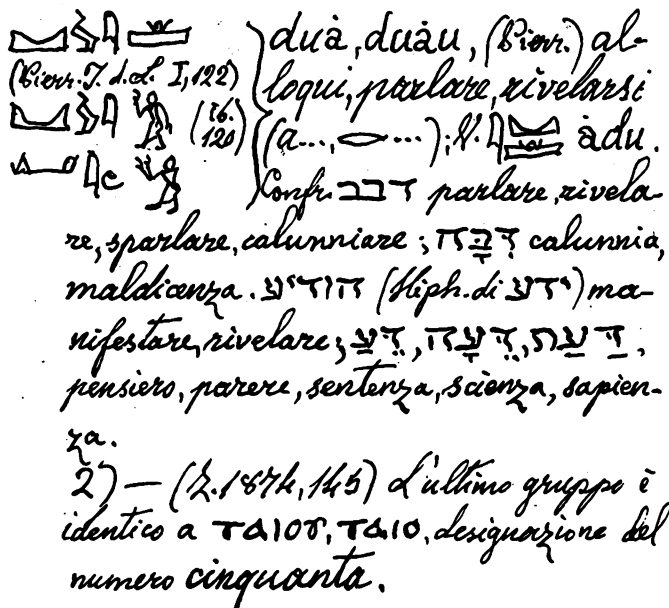 duȧ, duȧu, (Pierr.) al-
(Pierr. J. d. L. I, 122) loqui, parlare, rivelarsi
(Ib. 120) (a..., 𓂋 ...); V. ȧdu.
Confr. דבב parlare, rivela-
re, sparlare, calunniare; דִּבָּה calunnia,
maldicenza. הודיע (Hiph. di ידע) ma-
nifestare, rivelare; דֵּעַ, דֵּעָה, דַּעַת,
pensiero, parere, sentenza, scienza, sapien-
za.
2) — (Z. 1874, 145) L'ultimo gruppo è
identico a designazione del
numero cinquanta.